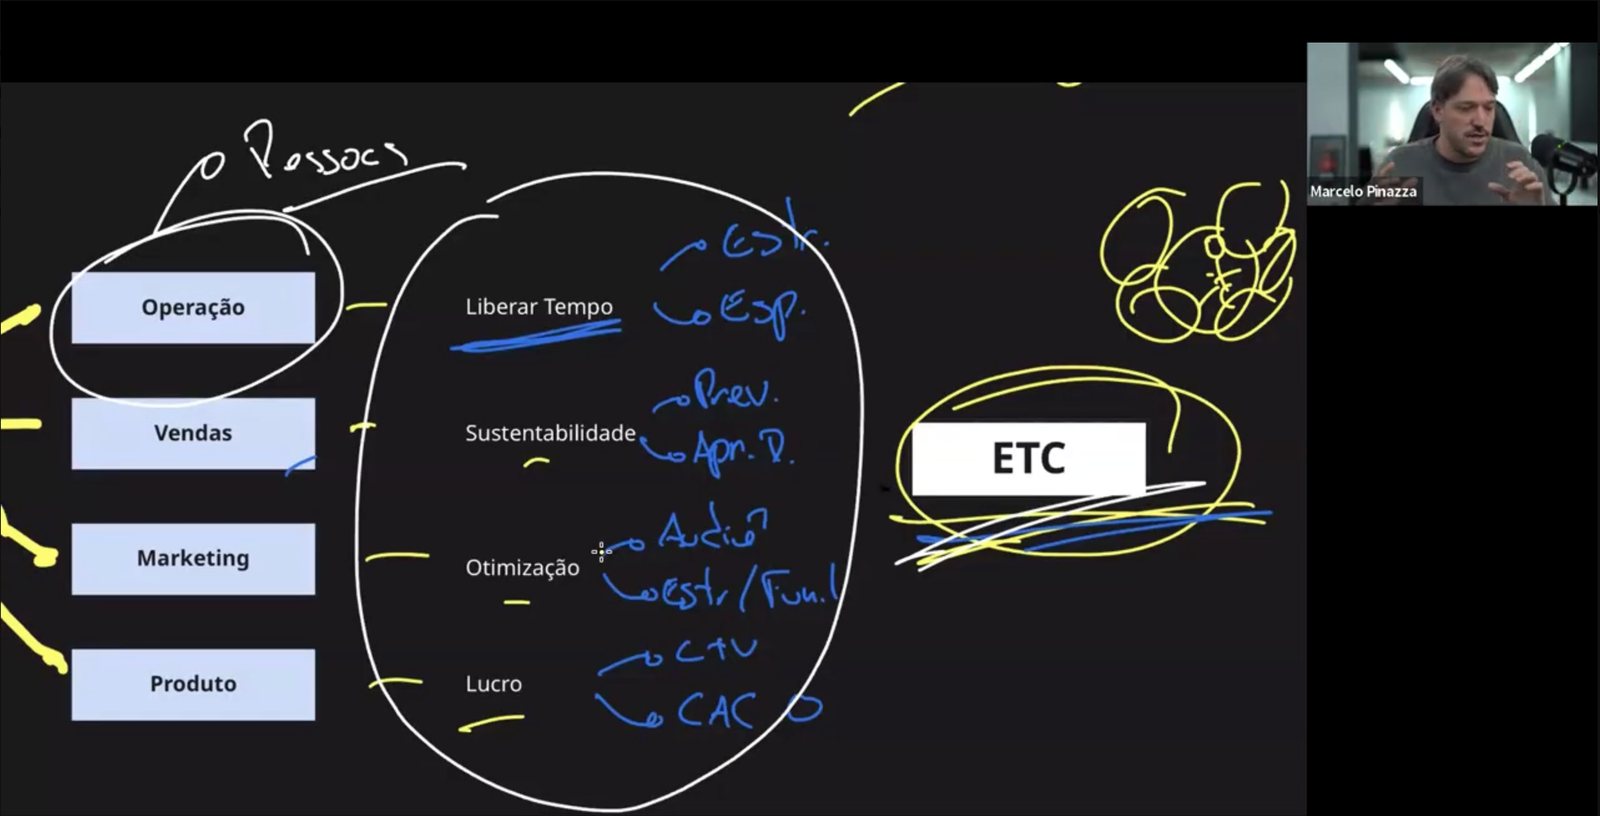 Pessoas
Marcelo Pinazza
Operação
Liberar Tempo
Estr.
Esp.
Vendas
Sustentabilidade
Prev.
Apr. D.
ETC
Marketing
Otimização
Estr/Fun.l
Produto
Lucro
CAC O